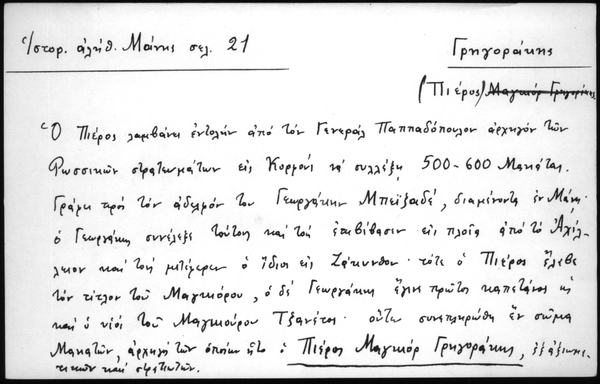 Ἱστορ. ἀλήθ. Μάνης σελ. 21
Γρηγοράκης
(Πιέρος) Μαγκιόρ Γρηγοράκης
Ὁ Πιέρος λαμβάνει ἐντολήν ἀπό τόν Γενεράλ Παππαδόπουλον ἀρχηγόν τῶν
Ρωσσικῶν στρατευμάτων εἰς Κορφούς νά συλλέξῃ 500-600 Μανιάτας.
Γράφει πρός τόν ἀδελφόν του Γεωργάκην Μπεϊζαδέ, διαμένοντα ἐν Μάνῃ.
ὁ Γεωργάκης συνέλεξε τούτους καί τούς ἐπεβίβασεν εἰς πλοῖα ἀπό τό Ἀχίλ-
λειον καί τούς μετέφερεν ὁ ἴδιος εἰς Ζάκυνθον· τότε ὁ Πιέρος ἔλαβε
τόν τίτλον τοῦ Μαγκιόρου, ὁ δέ Γεωργάκης ἔγινε πρῶτος καπετάνος ὡς
καί ὁ υἱός τοῦ Μαγκιούρου Τζανέτος· οὕτω συνεπληρώθη ἕν σῶμα
Μανιατῶν, ἀρχηγός τῶν ὁποίων ἦτο ὁ Πιέρος Μαγκιόρ Γρηγοράκης, ἐξ ἀξιωμα-
τικῶν καί στρατιωτῶν.